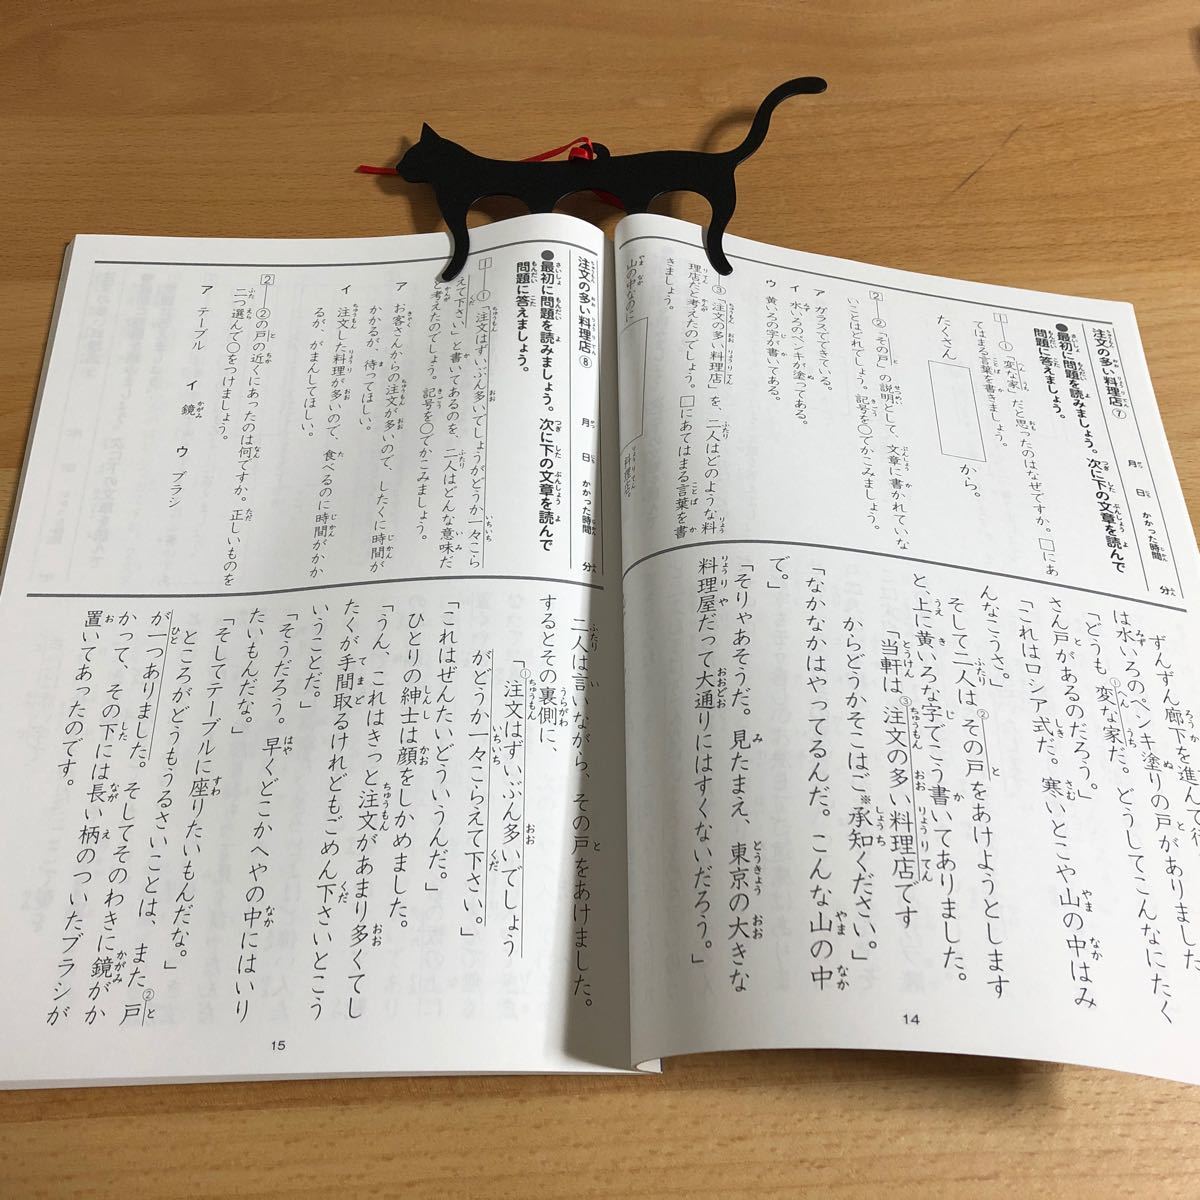 注文の多い料理店⑦
月 日 かかった時間 分
●最初に問題を読みましょう。次に下の文章を読んで
問題に答えましょう。
1 ―①「変な家」だと思ったのはなぜですか。□にあ
てはまる言葉を書きましょう。
たくさん
から。
2 ―②「その戸」の説明として、文章に書かれていな
いことはどれでしょう。記号を○でかこみましょう。
ア ガラスでできている。
イ 水いろのペンキが塗ってある。
ウ 黄いろの字が書いてある。
―③「注文の多い料理店」を、二人はどのような料
理店だと考えたのでしょう。□にあてはまる言葉を書
きましょう。
山の中なのに
料理店。
ずんずん廊下を進んで
は水いろのペンキ塗りの戸がありました。
「どうも①変な家だ。どうしてこんなにたく
さん戸があるのだろう。」
「これはロシア式だ。寒いとこや山の中はみ
んなこうさ。」
そして二人は②その戸をあけようとします
と、上に黄いろな字でこう書いてありました。
「当軒は③注文の多い料理店です
からどうかそこはご※承知ください。」
「なかなかはやってるんだ。こんな山の中
で。」
「そりゃあそうだ。見たまえ、東京の大きな
料理屋だって大通りにはすくないだろう。」
14
注文の多い料理店⑧
月 日 かかった時間 分
●最初に問題を読みましょう。次に下の文章を読んで
問題に答えましょう。
1 ―①「注文はずいぶん多いでしょうがどうか一々こら
えて下さい」と書いてあるのを、二人はどんな意味だ
と考えたのでしょう。記号を○でかこみましょう。
ア お客さんからの注文が多いので、したくに時間が
かかるが、待ってほしい。
イ 注文した料理が多いので、食べるのに時間がかか
るが、がまんしてほしい。
2 ―②の戸の近くにあったのは何ですか。正しいものを
二つ選んで○をつけましょう。
ア テーブル イ 鏡 ウ ブラシ
二人は言いながら、その戸をあけました。
するとその裏側に、
「①注文はずいぶん多いでしょう
がどうか一々こらえて下さい。」
「これはぜんたいどういうんだ。」
ひとりの紳士は顔をしかめました。
「うん、これはきっと注文があまり多くてし
たくが手間取るけれどもごめん下さいとこう
いうことだ。」
「そうだろう。早くどこかへやの中にはいり
たいもんだな。」
「そしてテーブルに座りたいもんだな。」
ところがどうもうるさいことは、また②戸
が一つありました。そしてそのわきに鏡がか
かって、その下には長い柄のついたブラシが
置いてあったのです。
15